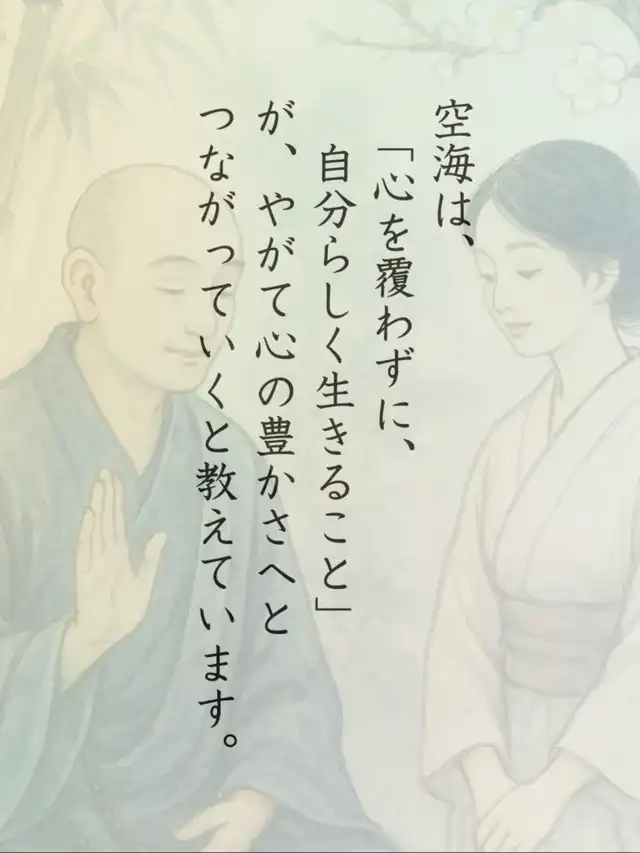 空海は、
「心を覆わずに、
自分らしく生きること」
が、やがて心の豊かさへと
つながっていくと教えています。